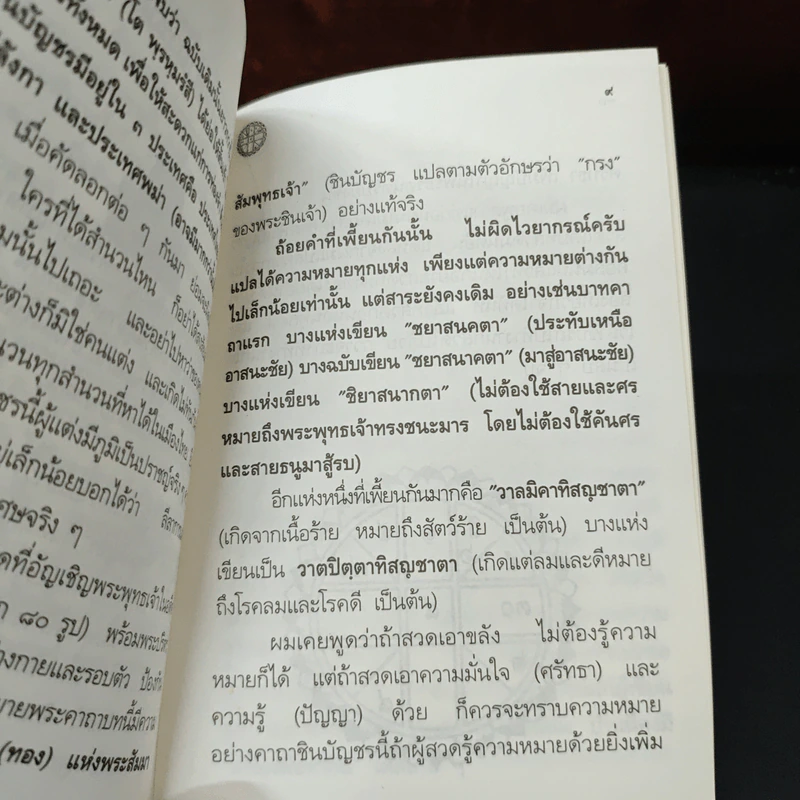 บว่า ฉบับเดิมนั้น
(โต พฺรหฺมรํสี) ได้ย่อ
ทั้งหมด เพื่อให้สะดวกแก่การ
นบัญชรมีอยู่ใน ๓ ประเทศคือ ประเทศ
ลังกา และประเทศพม่า (อาจมี
เมื่อคัดลอกต่อ ๆ กันมา ย่อม
ใครที่ได้สำนวนไหน ก็อย่าได้
มนั้นไปเถอะ และอย่าไปหาว่า
ะต่างก็มิใช่คนแต่ง และเกิดไม่ทัน
นวนทุกสำนวนที่หาได้ในเมืองไทย
ชรนี้ผู้แต่งมีภูมิเป็นปราชญ์จริง ๆ
ยู่เล็กน้อยบอกได้ว่า ลีลา
ศษจริง ๆ
ดที่อัญเชิญพระพุทธเจ้าในอดี
ก ๘๐ รูป) พร้อมพระปริต
างกายและรอบตัว ป้องกัน
ยายพระคาถาบทนี้มีความ
(ทอง) แห่งพระสัมมา
๙
สัมพุทธเจ้า" (ชินบัญชร แปลตามตัวอักษรว่า "กรง"
ของพระชินเจ้า) อย่างแท้จริง
ถ้อยคำที่เพี้ยนกันนั้น ไม่ผิดไวยากรณ์ครับ
แปลได้ความหมายทุกแห่ง เพียงแต่ความหมายต่างกัน
ไปเล็กน้อยเท่านั้น แต่สาระยังคงเดิม อย่างเช่นบาทคา
ถาแรก บางแห่งเขียน "ชยาสนคตา" (ประทับเหนือ
อาสนะชัย) บางฉบับเขียน "ชยาสนาคตา" (มาสู่อาสนะชัย)
บางแห่งเขียน "ชิยาสนากตา" (ไม่ต้องใช้สายและศร
หมายถึงพระพุทธเจ้าทรงชนะมาร โดยไม่ต้องใช้คันศร
และสายธนูมาสู้รบ)
อีกแห่งหนึ่งที่เพี้ยนกันมากคือ "วาลมิคาทิสญฺชาตา"
(เกิดจากเนื้อร้าย หมายถึงสัตว์ร้าย เป็นต้น) บางแห่ง
เขียนเป็น วาตปิตฺตาทิสญฺชาตา (เกิดแต่ลมและดีหมาย
ถึงโรคลมและโรคดี เป็นต้น)
ผมเคยพูดว่าถ้าสวดเอาขลัง ไม่ต้องรู้ความ
หมายก็ได้ แต่ถ้าสวดเอาความมั่นใจ (ศรัทธา) และ
ความรู้ (ปัญญา) ด้วย ก็ควรจะทราบความหมาย
อย่างคาถาชินบัญชรนี้ถ้าผู้สวดรู้ความหมายด้วยยิ่งเพิ่ม